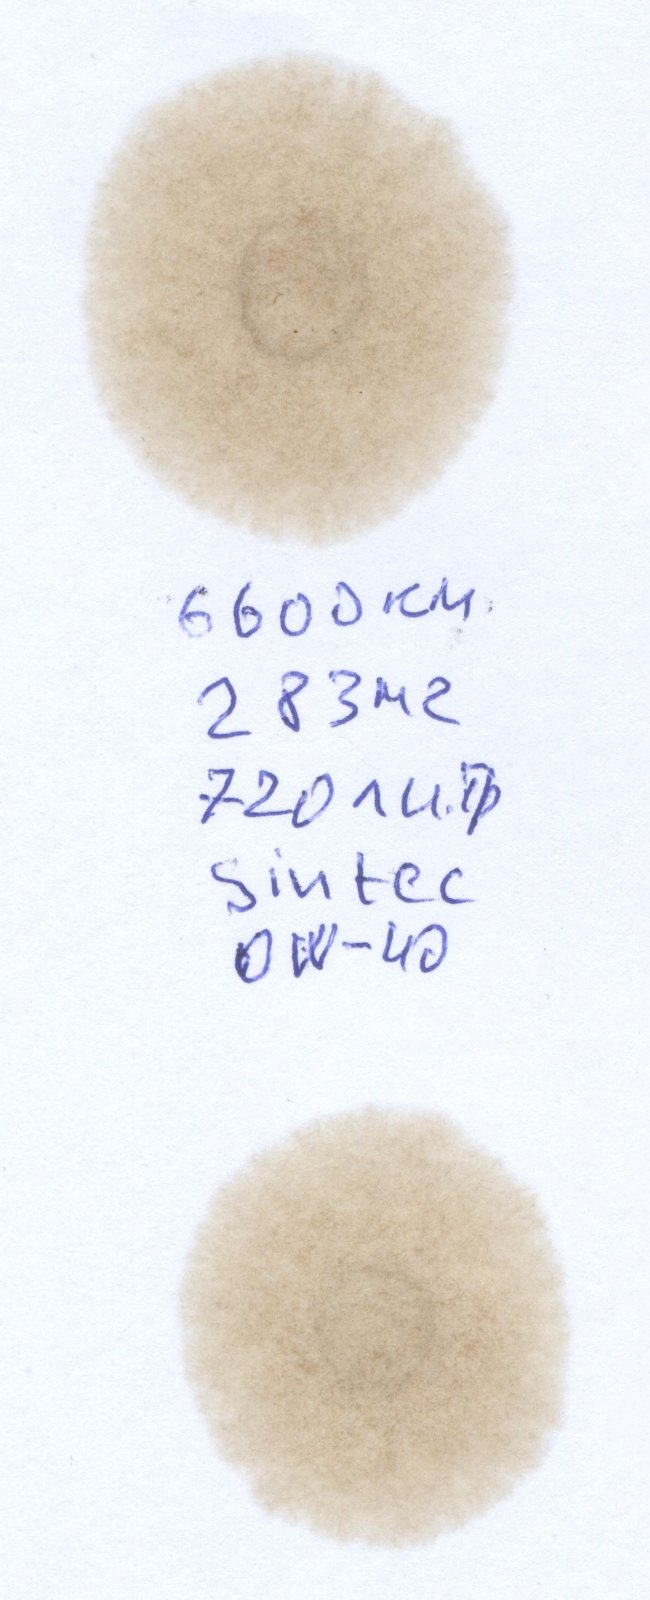 6600км
283мг
720лит
Sintec
0W-40